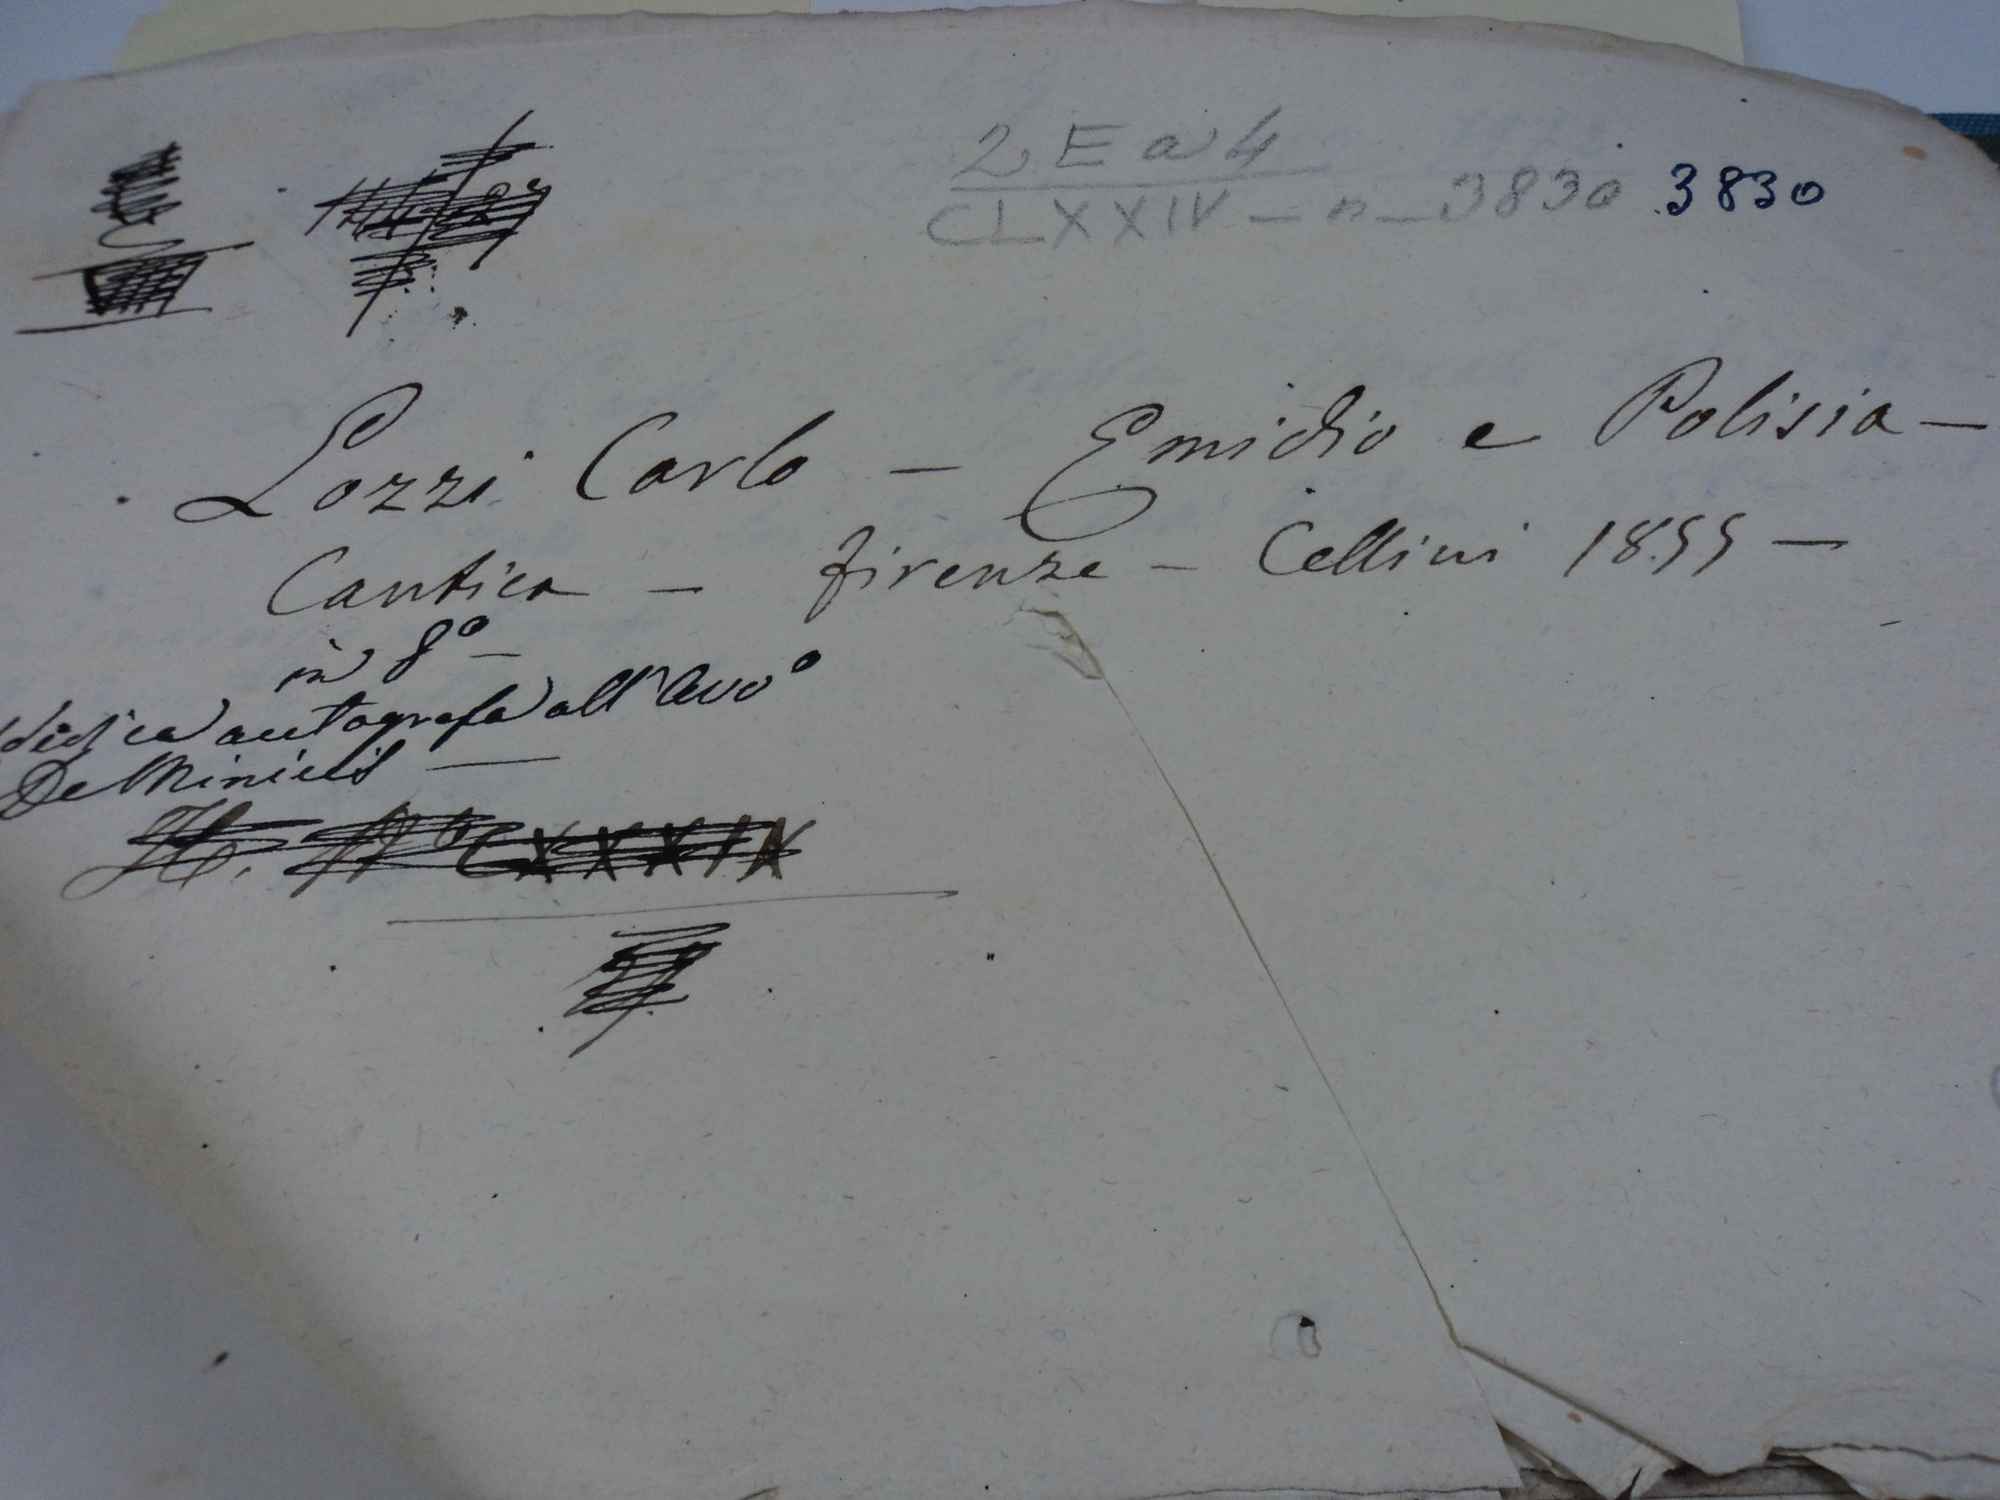 2 E a 4
CLXXIV - n - 3830 3830
Lozzi Carlo - Emidio e Polisia -
Cantica - firenze - Cellini 1855 -
in 8° -
dedica autografa all'Avv°
De Minicis -
H. N° CXXXIX